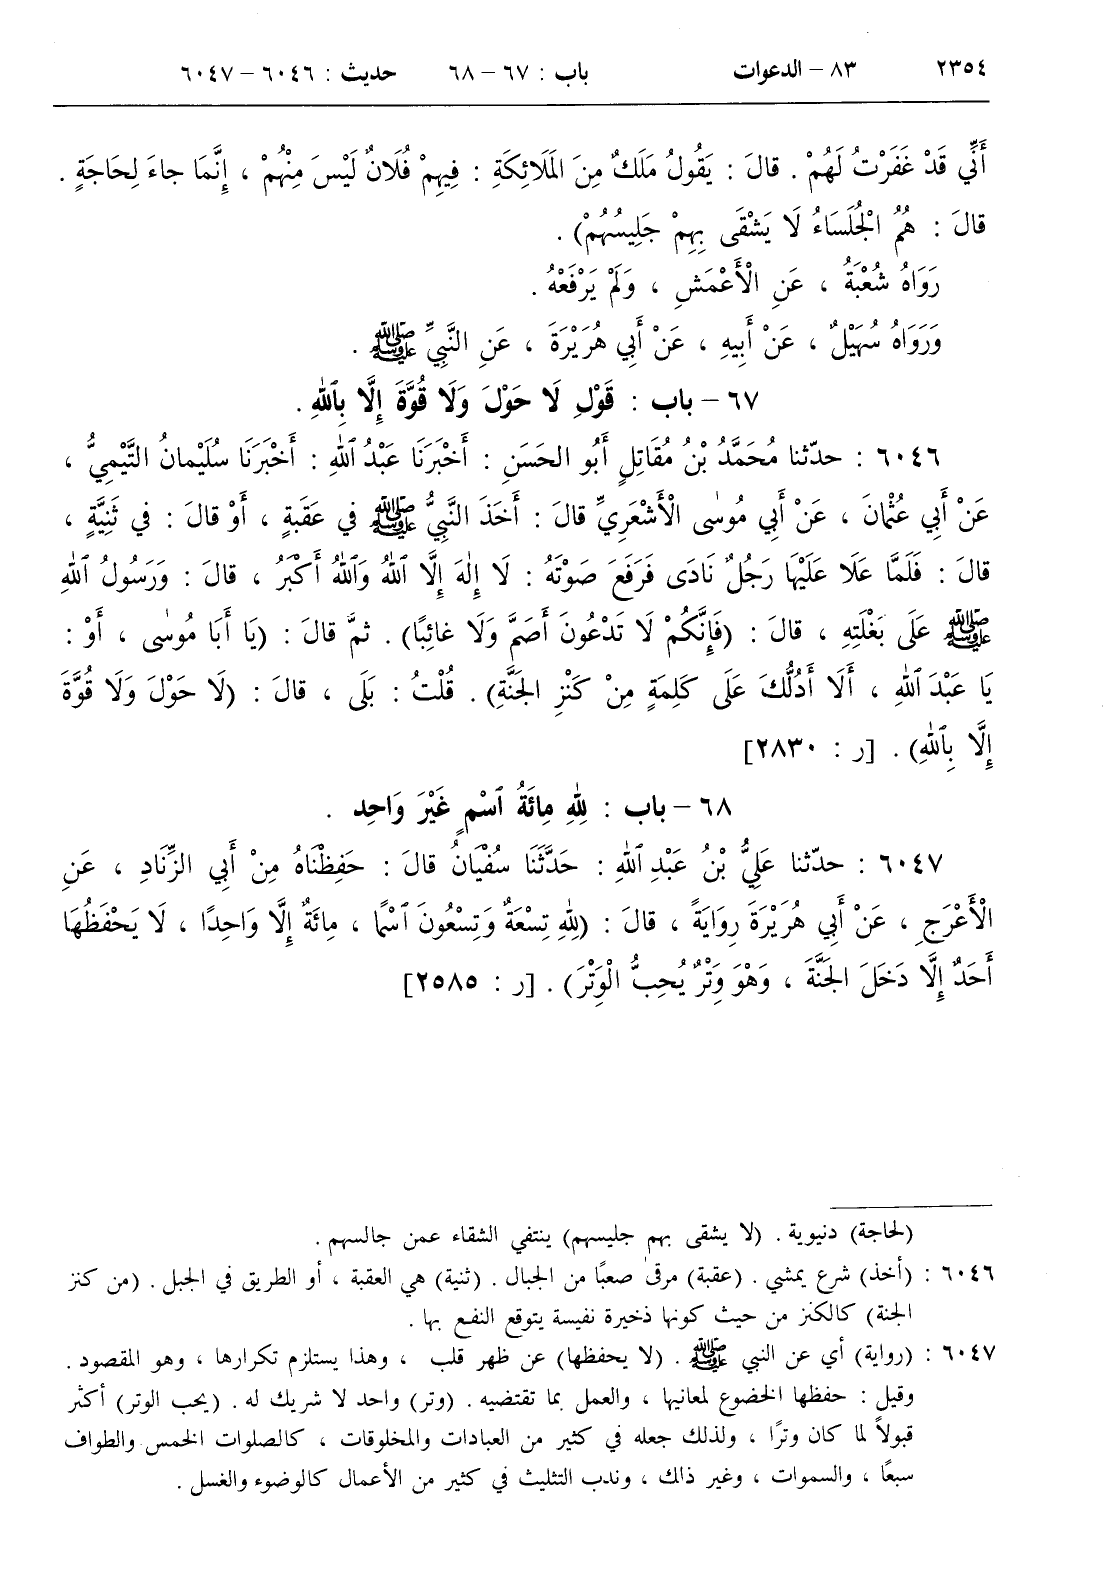 ٢٣٥٤ ٨٣ – الدعوات باب : ٦٧ – ٦٨ حديث : ٦٠٤٦ – ٦٠٤٧
أَنِّي قَدْ غَفَرْتُ لَهُمْ . قالَ : يَقُولُ مَلَكٌ مِنَ المَلَائِكَةِ : فِيهِمْ فُلَانٌ لَيْسَ مِنْهُمْ ، إِنَّمَا جاءَ لِحَاجَةٍ .
قالَ : هُمُ الْجُلَسَاءُ لَا يَشْقَى بِهِمْ جَلِيسُهُمْ) .
رَوَاهُ شُعْبَةُ ، عَنِ الْأَعْمَشِ ، وَلَمْ يَرْفَعْهُ .
وَرَوَاهُ سُهَيْلٌ ، عَنْ أَبِيهِ ، عَنْ أَبِي هُرَيْرَةَ ، عَنِ النَّبِيِّ ﷺ .
٦٧ – باب : قَوْلِ لَا حَوْلَ وَلَا قُوَّةَ إِلَّا بِٱللهِ .
٦٠٤٦ : حدّثنا مُحَمَّدُ بْنُ مُقَاتِلٍ أَبُو الحَسَنِ : أَخْبَرَنَا عَبْدُ ٱللهِ : أَخْبَرَنَا سُلَيْمانُ التَّيْمِيُّ ،
عَنْ أَبِي عُثْمانَ ، عَنْ أَبِي مُوسٰى الْأَشْعَرِيِّ قالَ : أَخَذَ النَّبِيُّ ﷺ فِي عَقَبَةٍ ، أَوْ قالَ : فِي ثَنِيَّةٍ ،
قالَ : فَلَمَّا عَلَا عَلَيْهَا رَجُلٌ نَادَى فَرَفَعَ صَوْتَهُ : لَا إِلٰهَ إِلَّا ٱللهُ وَٱللهُ أَكْبَرُ ، قالَ : وَرَسُولُ ٱللهِ
ﷺ عَلَى بَغْلَتِهِ ، قالَ : (فَإِنَّكُمْ لَا تَدْعُونَ أَصَمَّ وَلَا غائِبًا) . ثمَّ قالَ : (يَا أَبَا مُوسٰى ، أَوْ :
يَا عَبْدَ ٱللهِ ، أَلَا أَدُلُّكَ عَلَى كَلِمَةٍ مِنْ كَنْزِ الجَنَّةِ) . قُلْتُ : بَلَى ، قالَ : (لَا حَوْلَ وَلَا قُوَّةَ
إِلَّا بِٱللهِ) . [ر : ٢٨٣٠]
٦٨ – باب : لِلهِ مِائَةُ ٱسْمٍ غَيْرَ وَاحِد .
٦٠٤٧ : حدّثنا عَلِيُّ بْنُ عَبْدِ ٱللهِ : حَدَّثَنَا سُفْيَانُ قالَ : حَفِظْنَاهُ مِنْ أَبِي الزِّنَادِ ، عَنِ
الْأَعْرَجِ ، عَنْ أَبِي هُرَيْرَةَ رِوَايَةً ، قالَ : (لِلهِ تِسْعَةٌ وَتِسْعُونَ ٱسْمًا ، مِائَةٌ إِلَّا وَاحِدًا ، لَا يَحْفَظُهَا
أَحَدٌ إِلَّا دَخَلَ الجَنَّةَ ، وَهْوَ وِتْرٌ يُحِبُّ الْوِتْرَ) . [ر : ٢٥٨٥]
(لحاجة) دنيوية . (لا يشقى بهم جليسهم) ينتفي الشقاء عمن جالسهم .
٦٠٤٦ : (أخذ) شرع يمشي . (عقبة) مرقىً صعبًا من الجبال . (ثنية) هي العقبة ، أو الطريق في الجبل . (من كنز
الجنة) كالكنز من حيث كونها ذخيرة نفيسة يتوقع النفع بها .
٦٠٤٧ : (رواية) أي عن النبي ﷺ . (لا يحفظها) عن ظهر قلب ، وهذا يستلزم تكرارها ، وهو المقصود .
وقيل : حفظها الخضوع لمعانيها ، والعمل بما تقتضيه . (وتر) واحد لا شريك له . (يحب الوتر) أكثر
قبولاً لما كان وترًا ، ولذلك جعله في كثير من العبادات والمخلوقات ، كالصلوات الخمس والطواف
سبعًا ، والسموات ، وغير ذلك ، وندب التثليث في كثير من الأعمال كالوضوء والغسل .